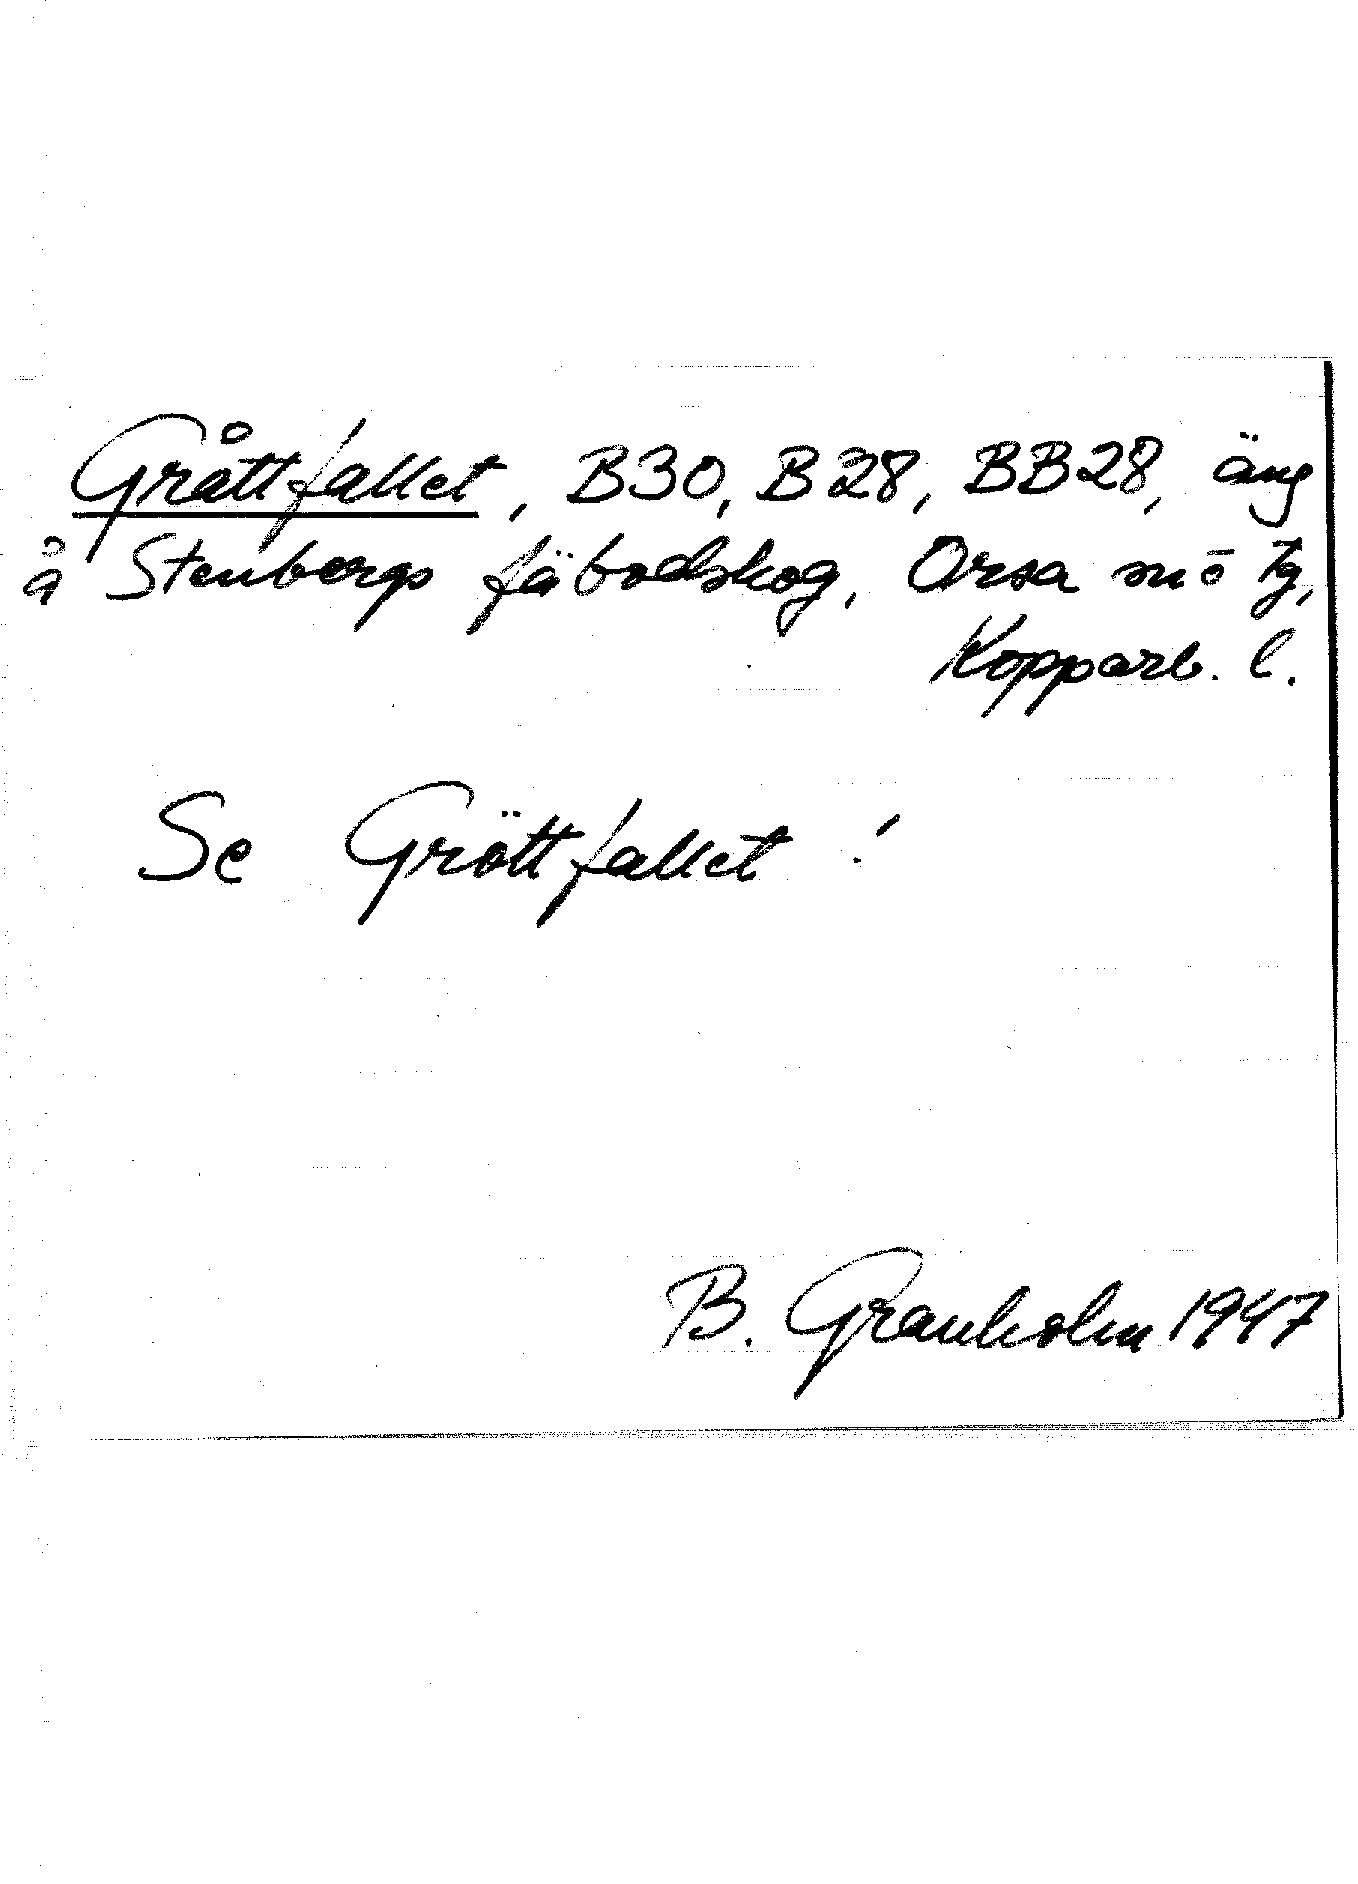 Gråttfallet, B30, B28, BB28, äng
å Stenbergs fäbodskog, Orsa sn o tg,
Kopparb. l.
Se Gröttfallet!
B. Granholm 1947